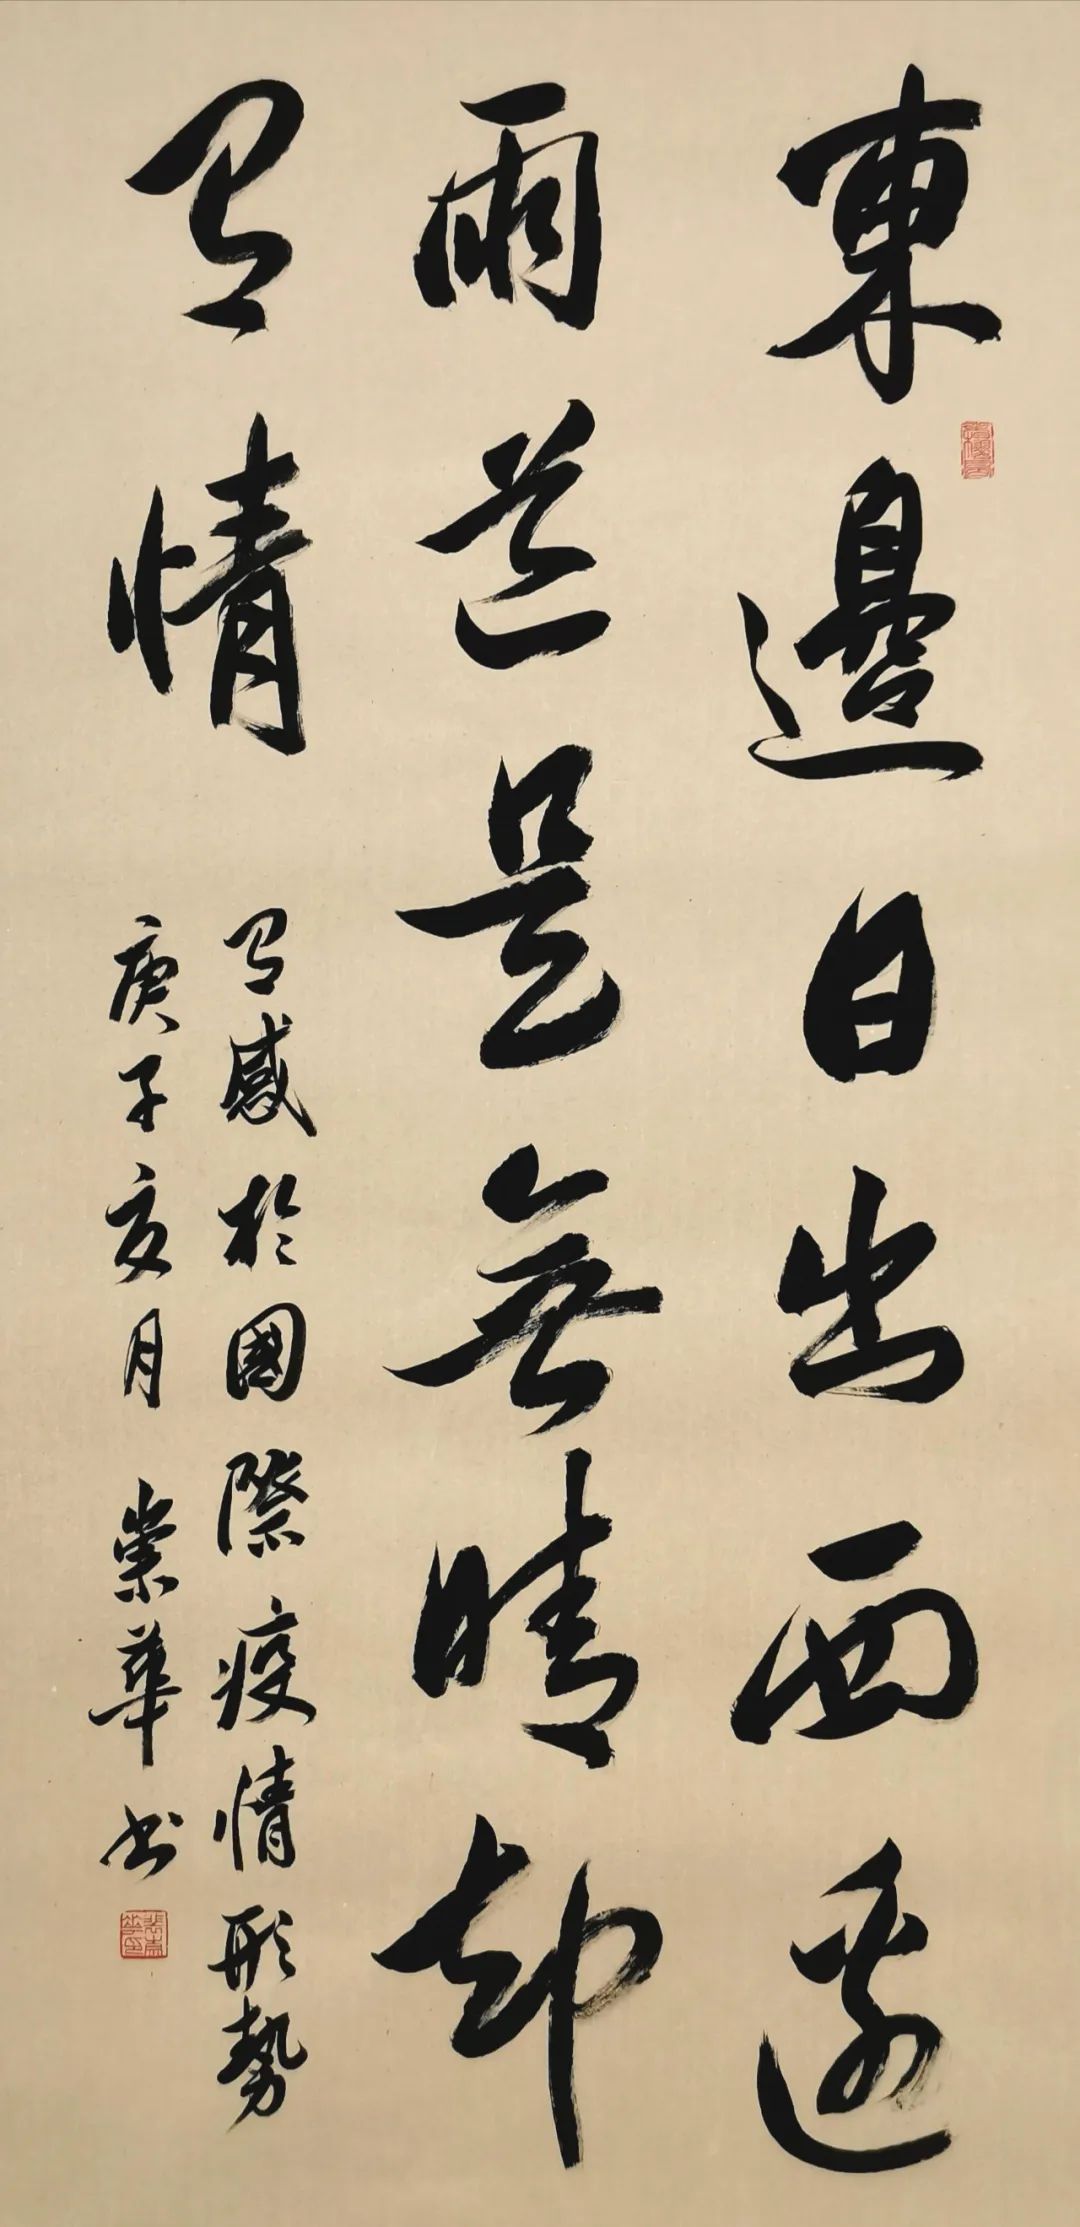 東邊日出西邊
雨道是無晴却
有情
有感於國際疫情形勢
庚子亥月 崇華書